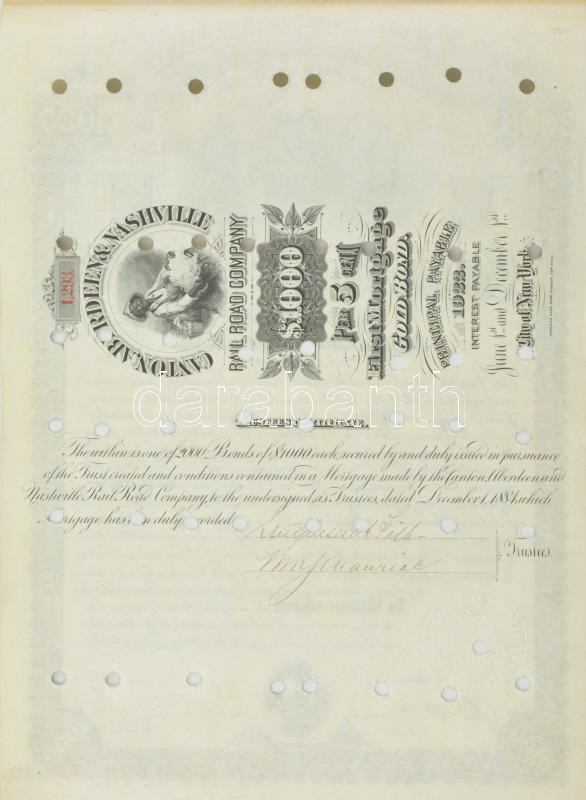 1,293.
CANTON, ABERDEEN & NASHVILLE
RAIL ROAD COMPANY
$1000
PER 5 CENT
FIRST MORTGAGE
GOLD BOND.
PRINCIPAL PAYABLE
1933.
INTEREST PAYABLE
June 1st and December 1st
City of New York
TRUSTEES CERTIFICATE.
The within is one of 2000 Bonds of $1000 each, secured by and duly issued in pursuance
of the Trust created and conditions contained in a Mortgage made by the Canton, Aberdeen and
Nashville Rail Road Company, to the undersigned, as Trustees, dated December 1, 1881, which
Mortgage has been duly recorded.
Trustees.
darabanth